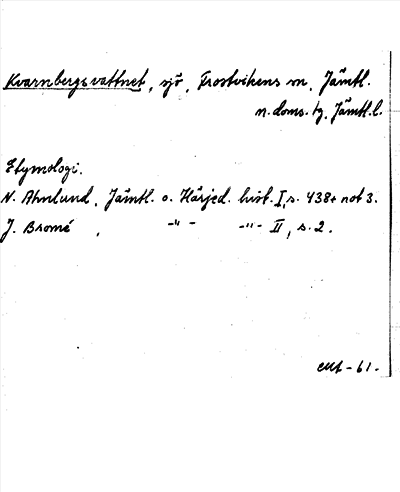 Kvarnbergsvattnet, sjö, Frostvikens sn, Jämtl.
n. doms. tg, Jämtl. l.
Etymologi.
N. Ahnlund, Jämtl. o. Härjed. hist. I, s. 438 + not 3.
J. Bromé, -"- -"- II, s. 2.
-61.